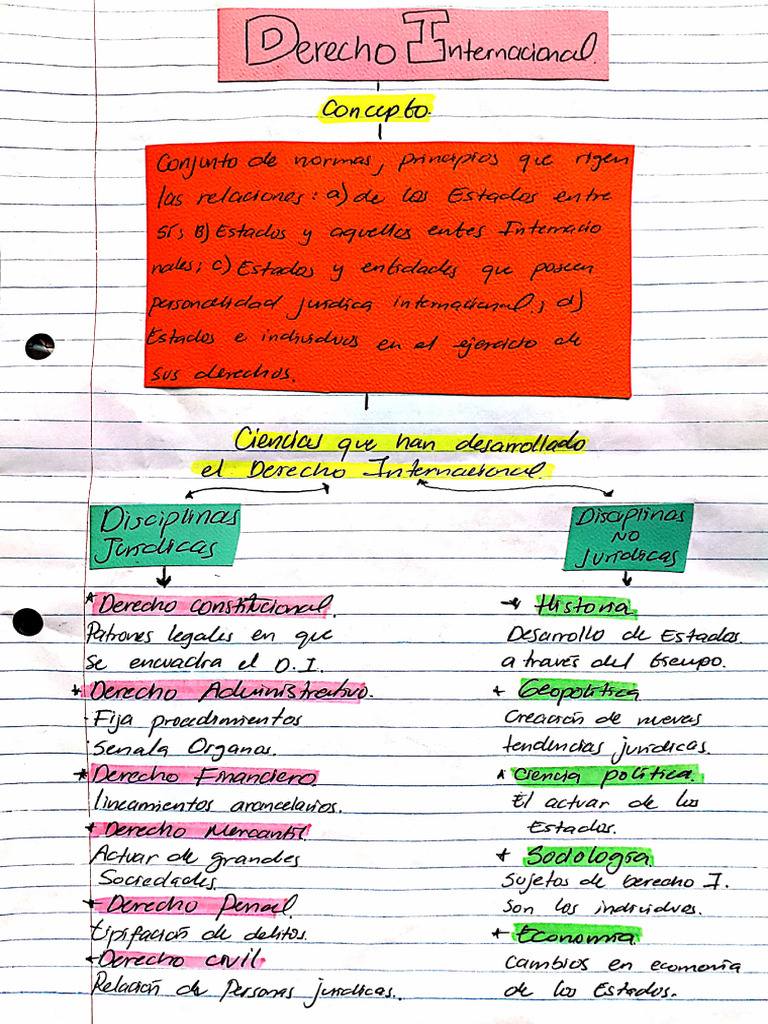 Derecho Internacional.
Concepto.
Conjunto de normas, principios que rigen
las relaciones: a) de los Estados entre
sí; B) Estados y aquellos entes Internacio
nales; c) Estados y entidades que poseen
personalidad jurídica internacional.; d)
Estados e individuos en el ejercicio de
sus derechos.
Ciencias que han desarrollado
el Derecho Internacional.
Disciplinas
Jurídicas
* Derecho constitucional.
Patrones legales en que
se encuadra el D.I.
* Derecho Administrativo.
- Fija procedimientos
Senala Organos.
* Derecho Financiero.
lineamientos arancelarios.
* Derecho Mercantil
Actuar de grandes
Sociedades.
* Derecho Penal.
tipifación de delitos.
* Derecho civil
Relación de Personas jurídicas.
Disciplinas
NO
Jurídicas
* Historia
Desarrollo de Estados.
a través del tiempo.
* Geopolítica
Creación de nuevas
tendencias jurídicas.
* Ciencia política.
El actuar de los
Estados.
* Sociología
Sujetos de Derecho I.
son los individuos.
* Economía
cambios en economía
de los Estados.